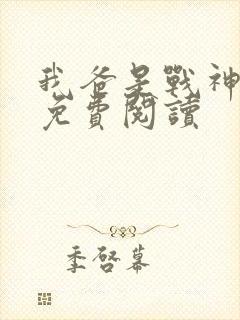 我爸是戰神
免費閱讀
季啓幕